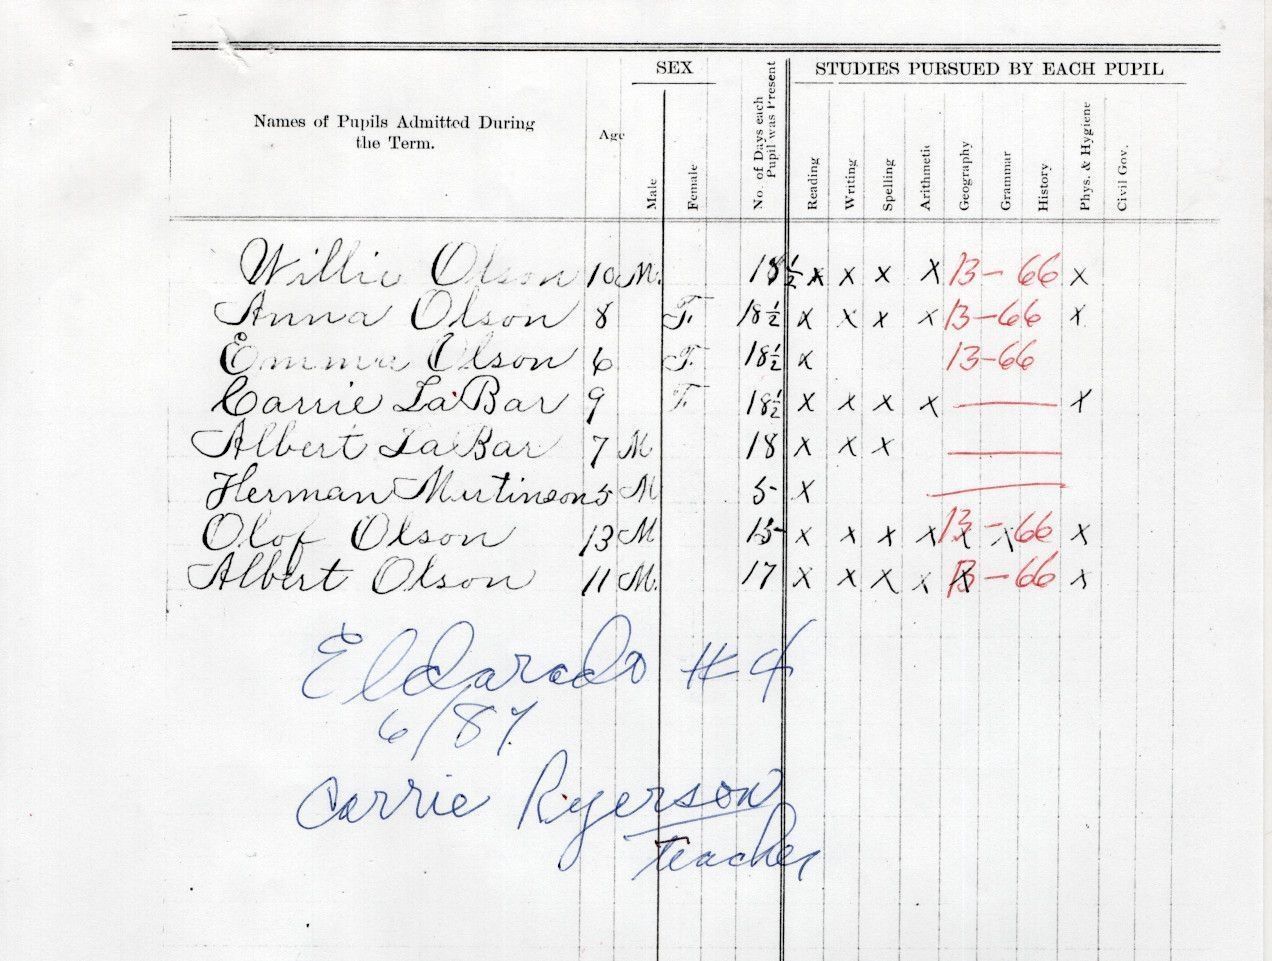 SEX STUDIES PURSUED BY EACH PUPIL
Names of Pupils Admitted During
the Term.
Age
Male
Female
No. of Days each
Pupil was Present
Reading
Writing
Spelling
Arithmetic
Geography
Grammar
History
Phys. & Hygiene
Civil Gov.
Willie Olson 10 M. 18½ x x x x 13-66 x
Anna Olson 8 F. 18½ x x x x 13-66 x
Emma Olson 6 F. 18½ x 13-66
Carrie LaBar 9 F. 18½ x x x x — x
Albert LaBar 7 M 18 x x x —
Herman Mertinson 5 M 5 x —
Olof Olson 13 M 15 x x x x x x 13-66 x
Albert Olson 11 M. 17 x x x x x 13-66 x
Eldarado #4
6/87
Carrie Ryerson
teacher